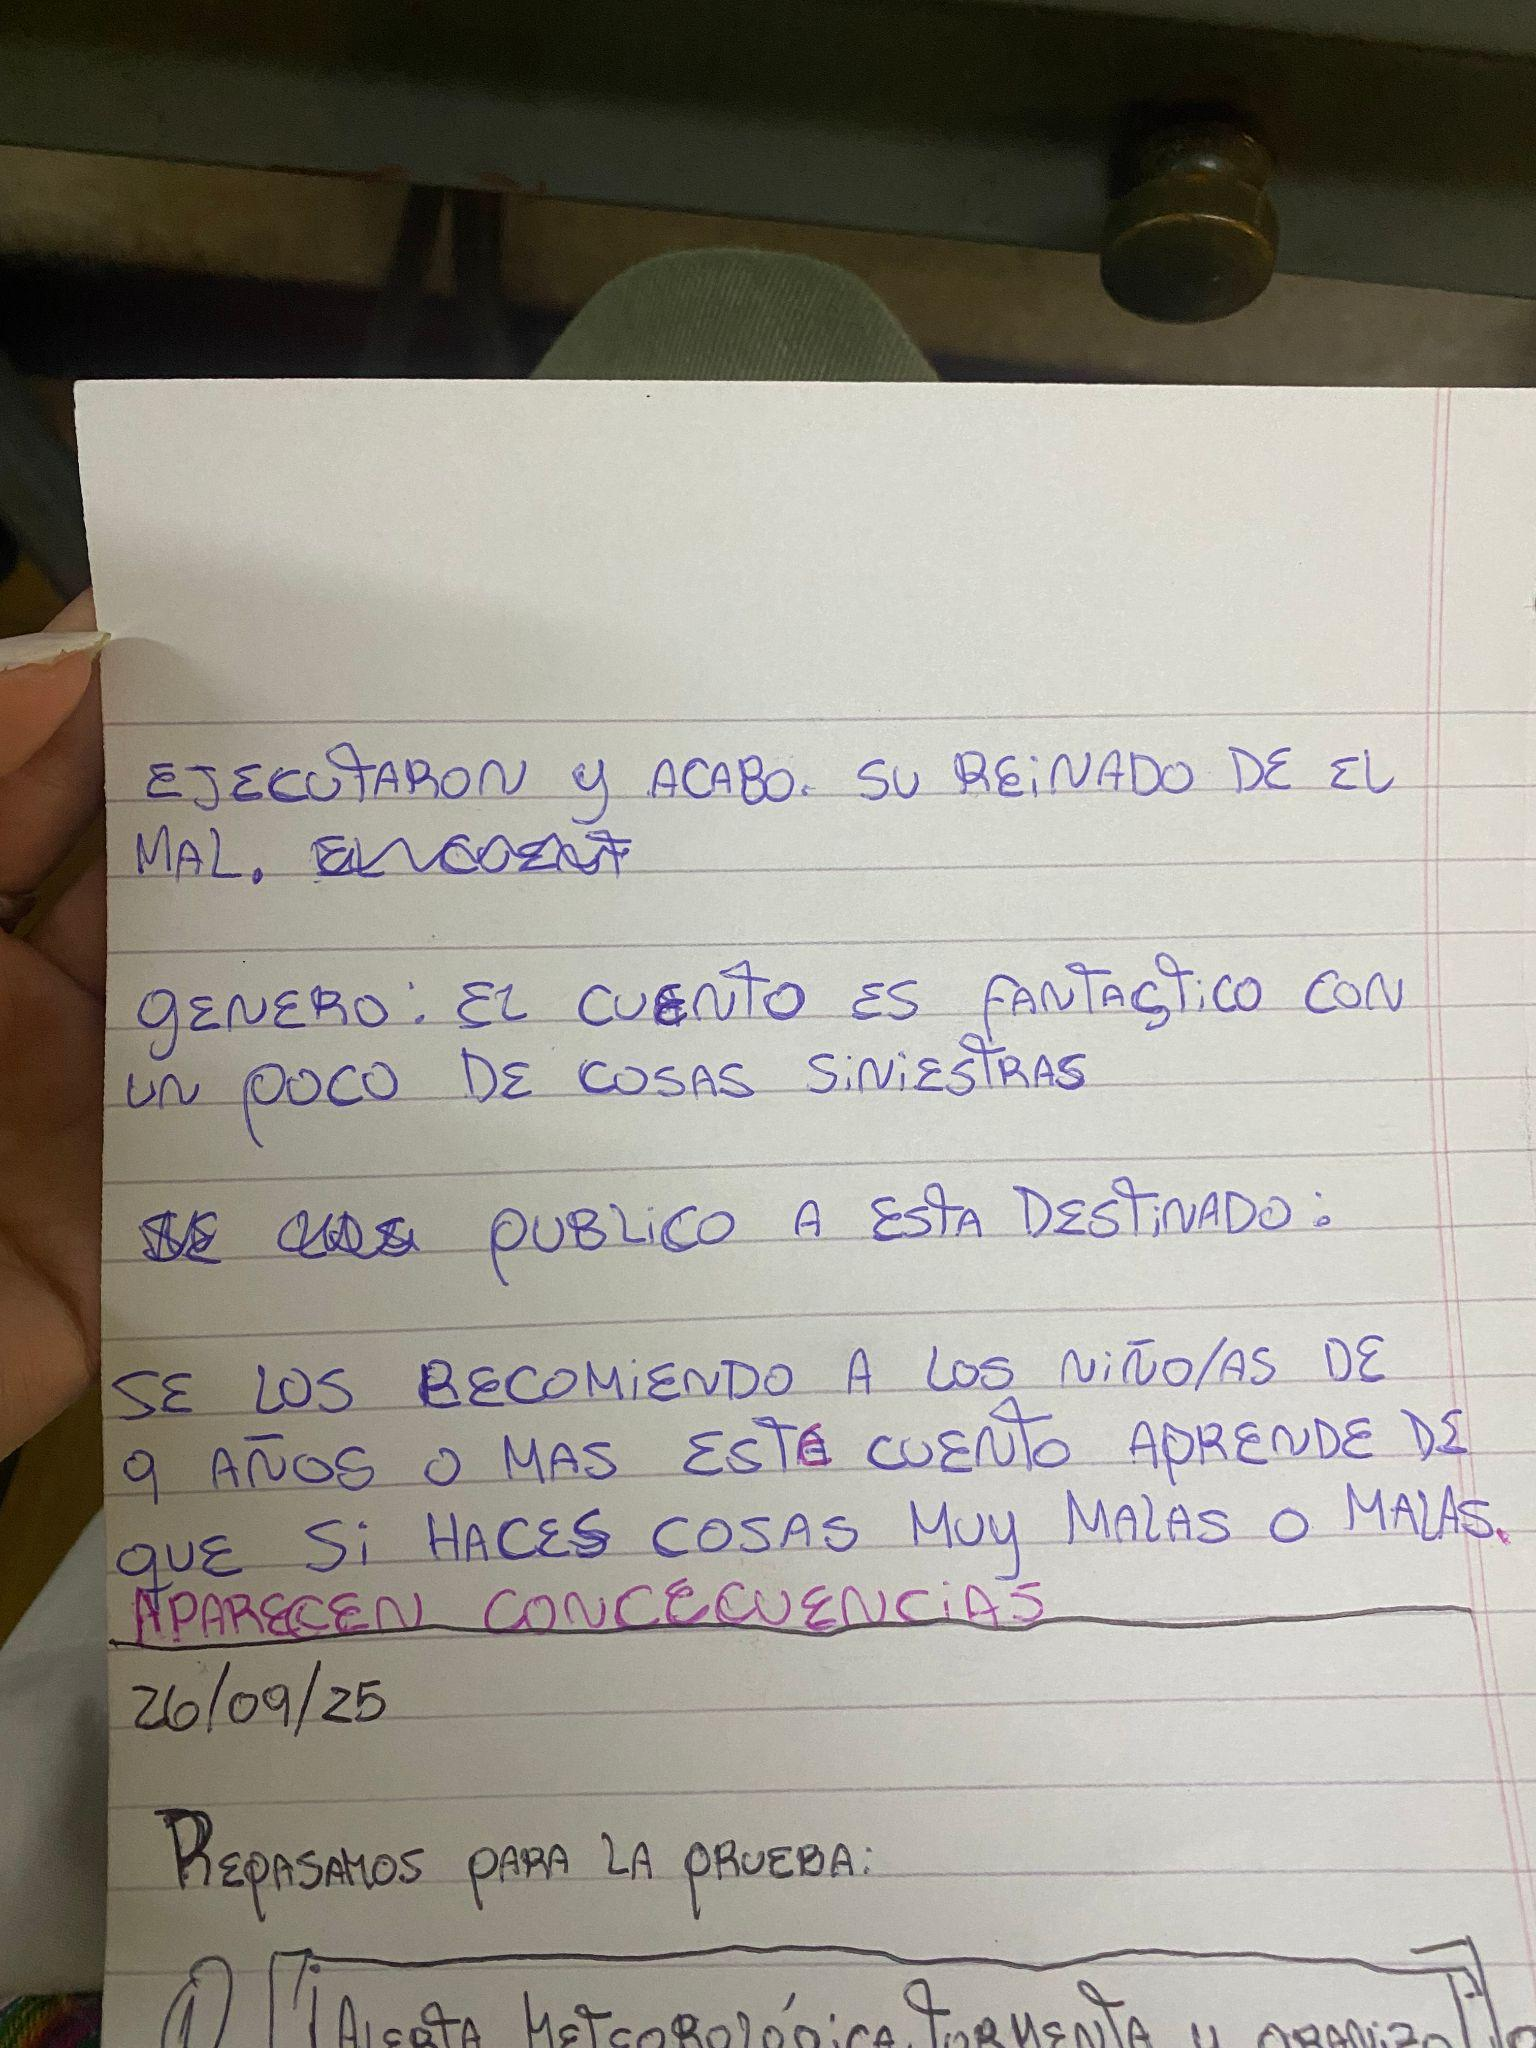 EJECUTARON Y ACABO. SU REINADO DE EL
MAL.
GENERO: EL CUENTO ES FANTASTICO CON
UN POCO DE COSAS SINIESTRAS
PUBLICO A ESTA DESTINADO:
SE LOS RECOMIENDO A LOS NIÑO/AS DE
9 AÑOS O MAS ESTE CUENTO APRENDE DE
QUE SI HACES COSAS MUY MALAS O MALAS.
APARECEN CONCECUENCIAS
26/09/25
REPASAMOS PARA LA PRUEBA:
1) ALERTA METEOROLÓGICA TORMENTA Y GRANIZO